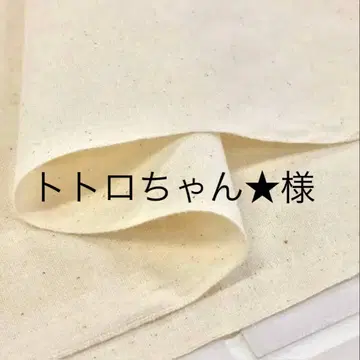 トトロちゃん★様